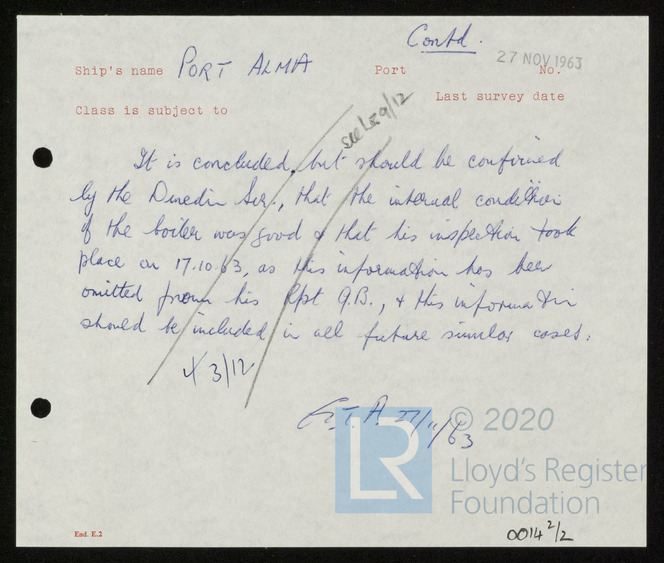 Contd.
27 NOV 1963
Ship's name PORT ALMA Port No.
Class is subject to Last survey date
see LE 9/12
It is concluded, but should be confirmed
by the Dunedin Sur., that the internal condition
of the boiler was good & that his inspection took
place on 17.10.63, as this information has been
omitted from his Rpt 9.B., & this information
should be included in all future similar cases.
3/12
27/11/63
LR
© 2020
Lloyd's Register
Foundation
End. E.2
0014 2/2